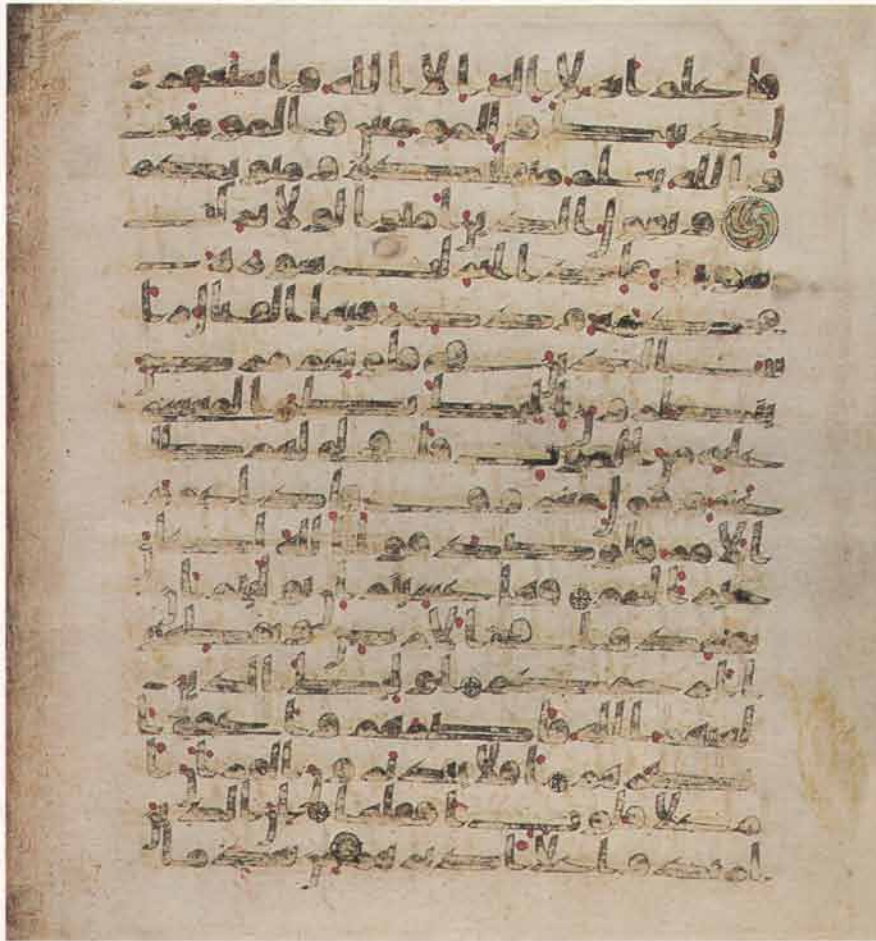 فاعلم انه لا اله الا الله واستغفر
لذنبك وللمومنين والمومنت
والله يعلم متقلبكم ومثويكم
ويقول الذين امنوا لولا نزلت
سورة فاذا انزلت سورة
محكمة وذكر فيها القتال را
يت الذين في قلوبهم مر
ض ينظرون اليك نظر المغشي
عليه من الموت فاولى لهم طا
عة وقول معروف فاذا عزم
الامر فلو صدقوا الله لكان
خيرا لهم فهل عسيتم ان توليتم ان
تفسدوا في الارض وتقطعوا
ارحامكم اولئك الذين
لعنهم الله فاصمهم واعمى ا
بصرهم افلا يتدبرون القران ا
م على قلوب اقفالها ان الذين
ارتدوا على ادبرهم من بعد ما